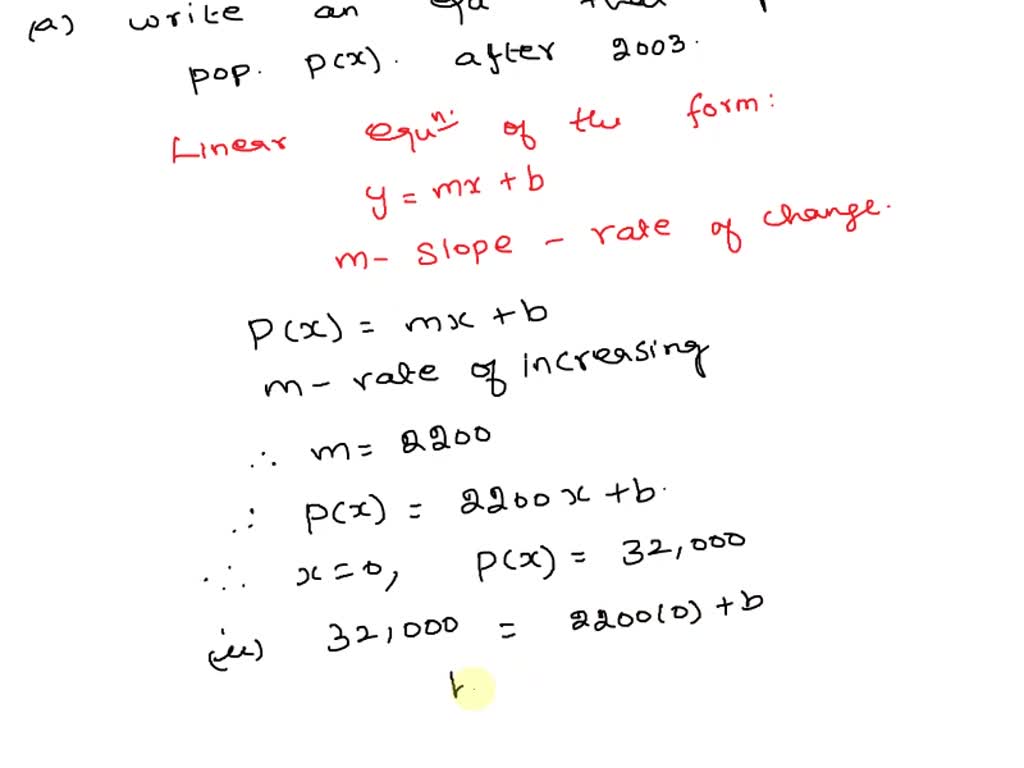 (a) write an
pop. P(x). after 2003.
Linear equⁿ. of the form:
y = mx + b
m - slope - rate of change.
P(x) = mx + b
m - rate of increasing
∴ m = 2200
∴ P(x) = 2200x + b.
∵ x = 0, P(x) = 32,000
32,000 = 2200(0) + b